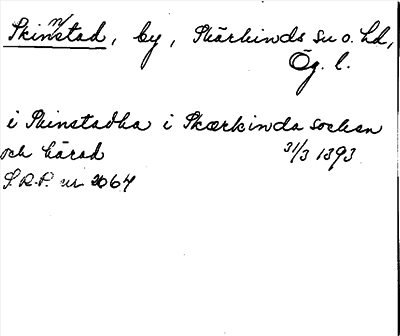 Skinnstad, by, Skärkinds sn o. hd,
Ög. l.
i Skinstadha i Skærkinda sochan
och härad 31/3 1393
S.R.P. nr 2664